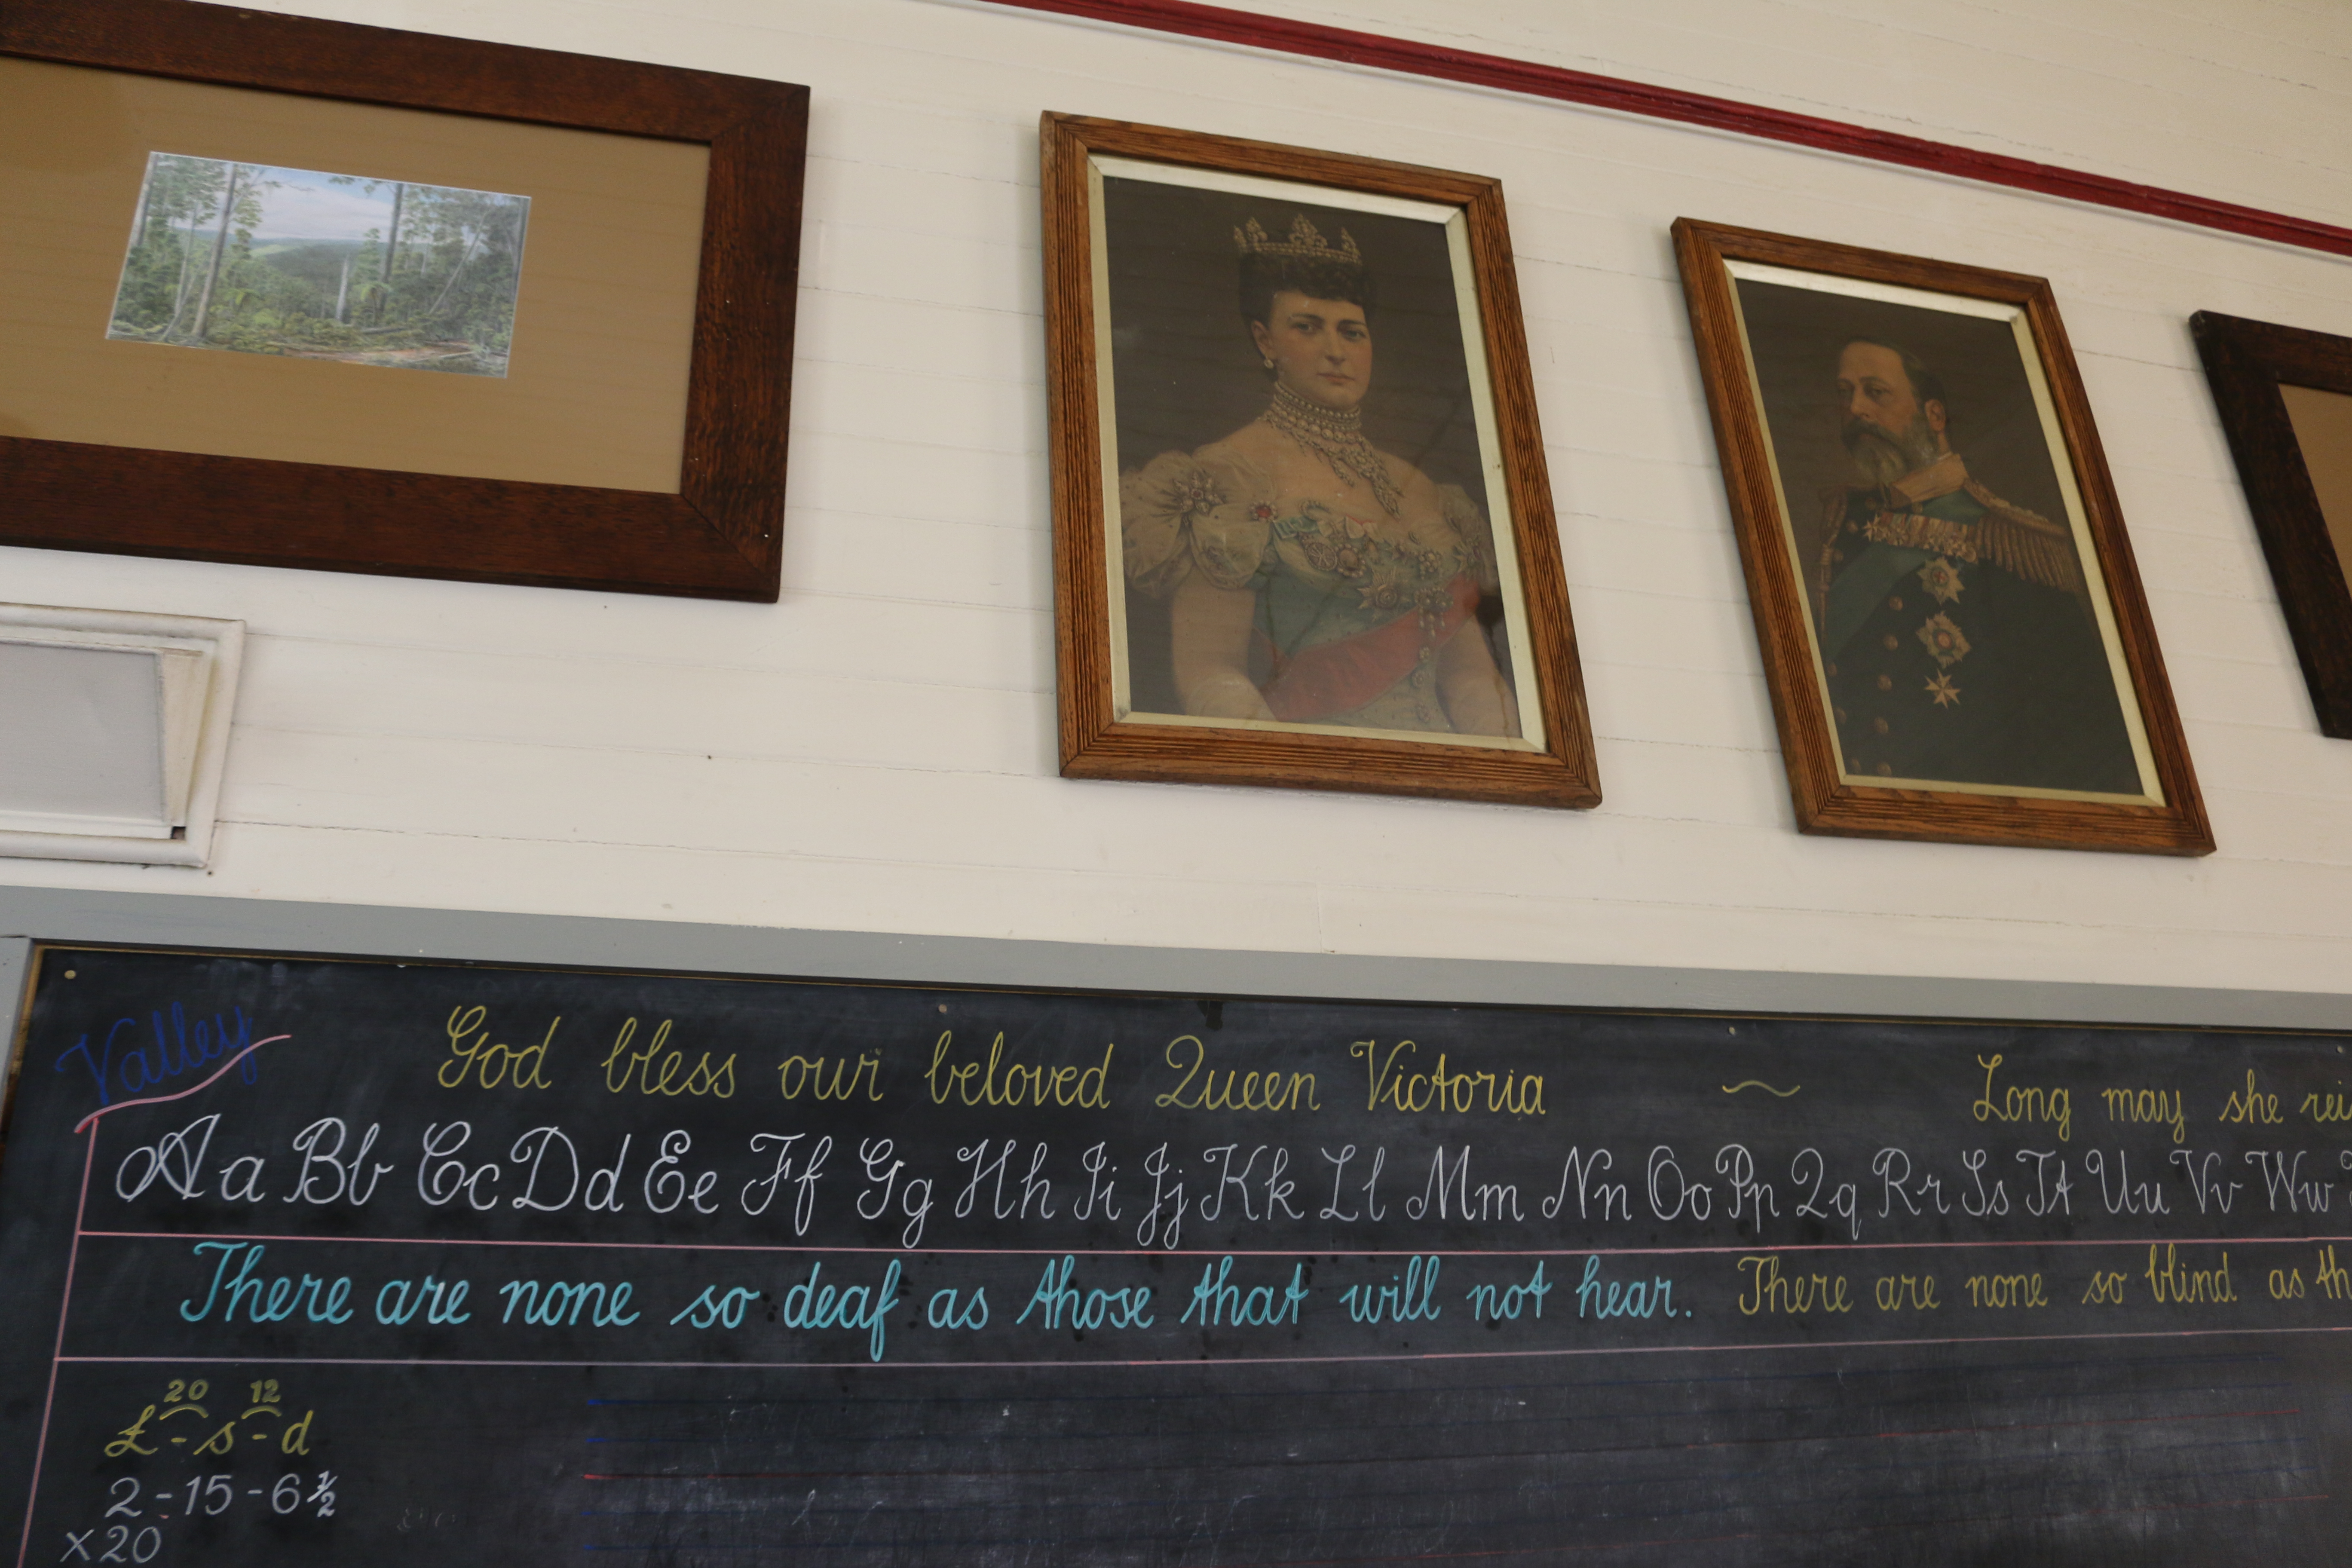 Valley
God bless our beloved Queen Victoria ~ Long may she rei
Aa Bb Cc Dd Ee Ff Gg Hh Ii Jj Kk Ll Mm Nn Oo Pp Qq Rr Ss Tt Uu Vv Ww
There are none so deaf as those that will not hear. There are none so blind as th
20 12
£ - s - d
2 - 15 - 6 1/2
x 20